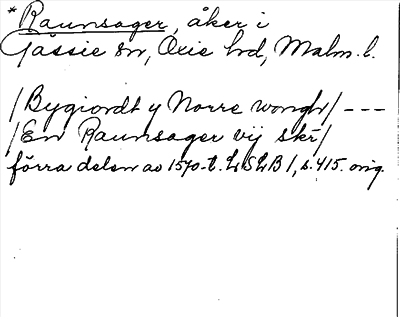 *Raunsager, åker i
Gässie sn, Oxie hrd, Malm. l.
/Bygiordt y Norre wongh/ ---
/En Raunsager vij skr/
förra delen av 1570-t. LSLB 1, s. 415. orig.